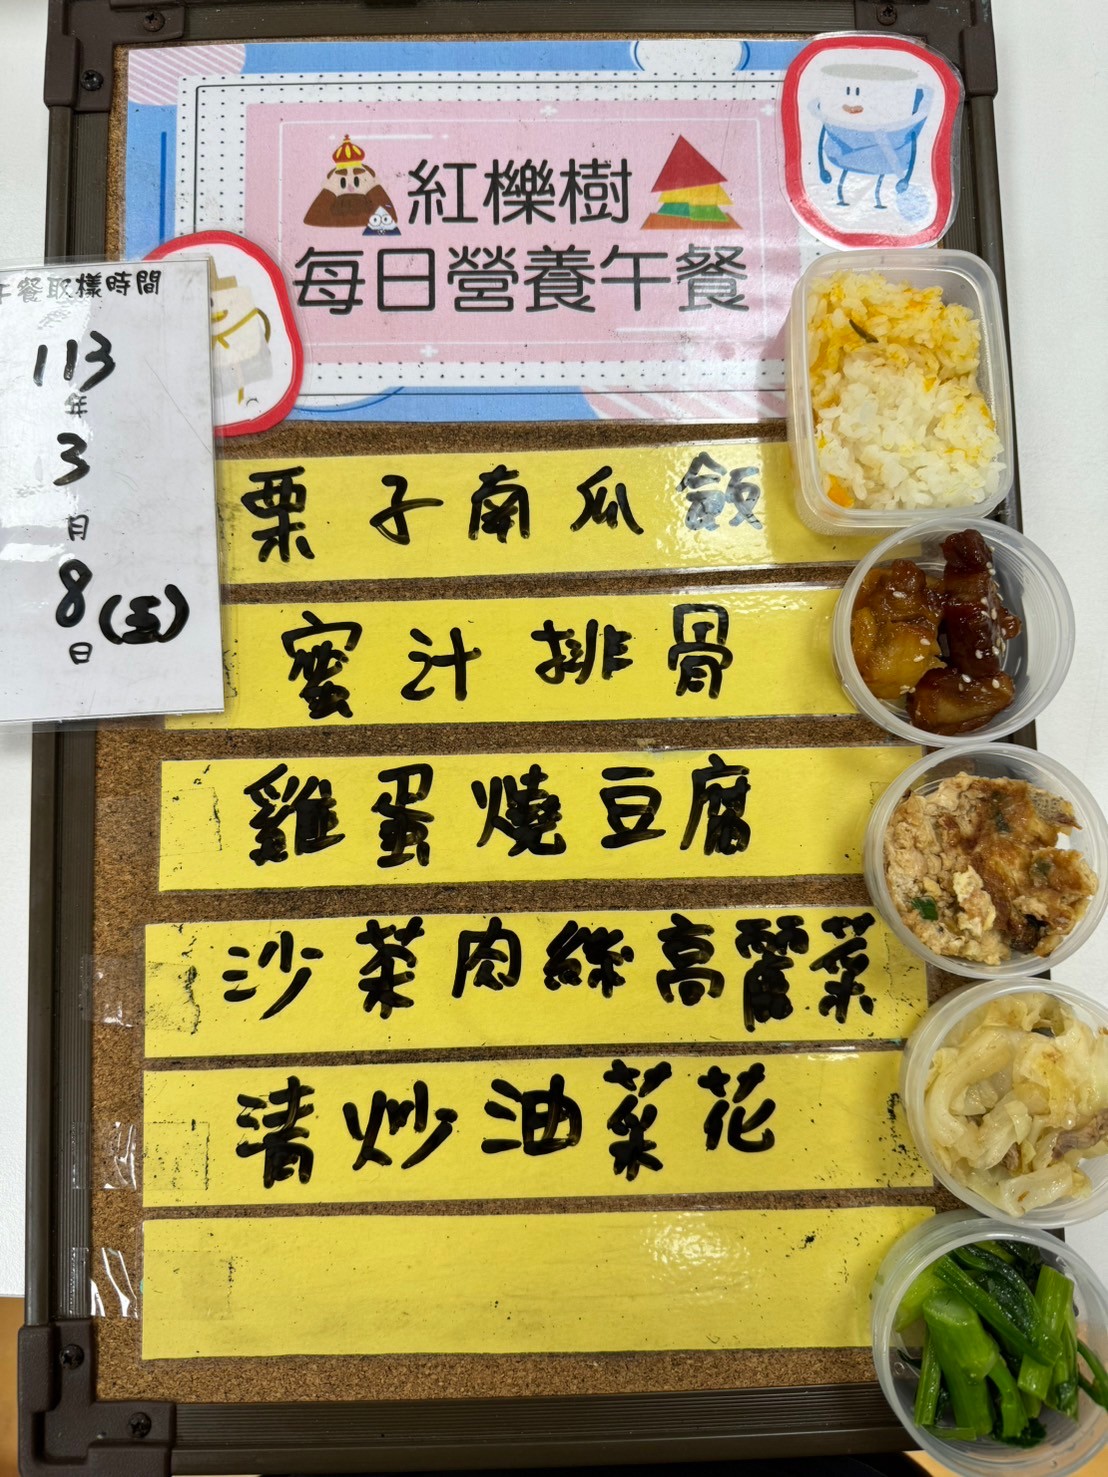 紅櫟樹
每日營養午餐
午餐取樣時間
113
年
3
月
8(五)
日
栗子南瓜飯
蜜汁排骨
雞蛋燒豆腐
沙茶肉絲高麗菜
清炒油菜花